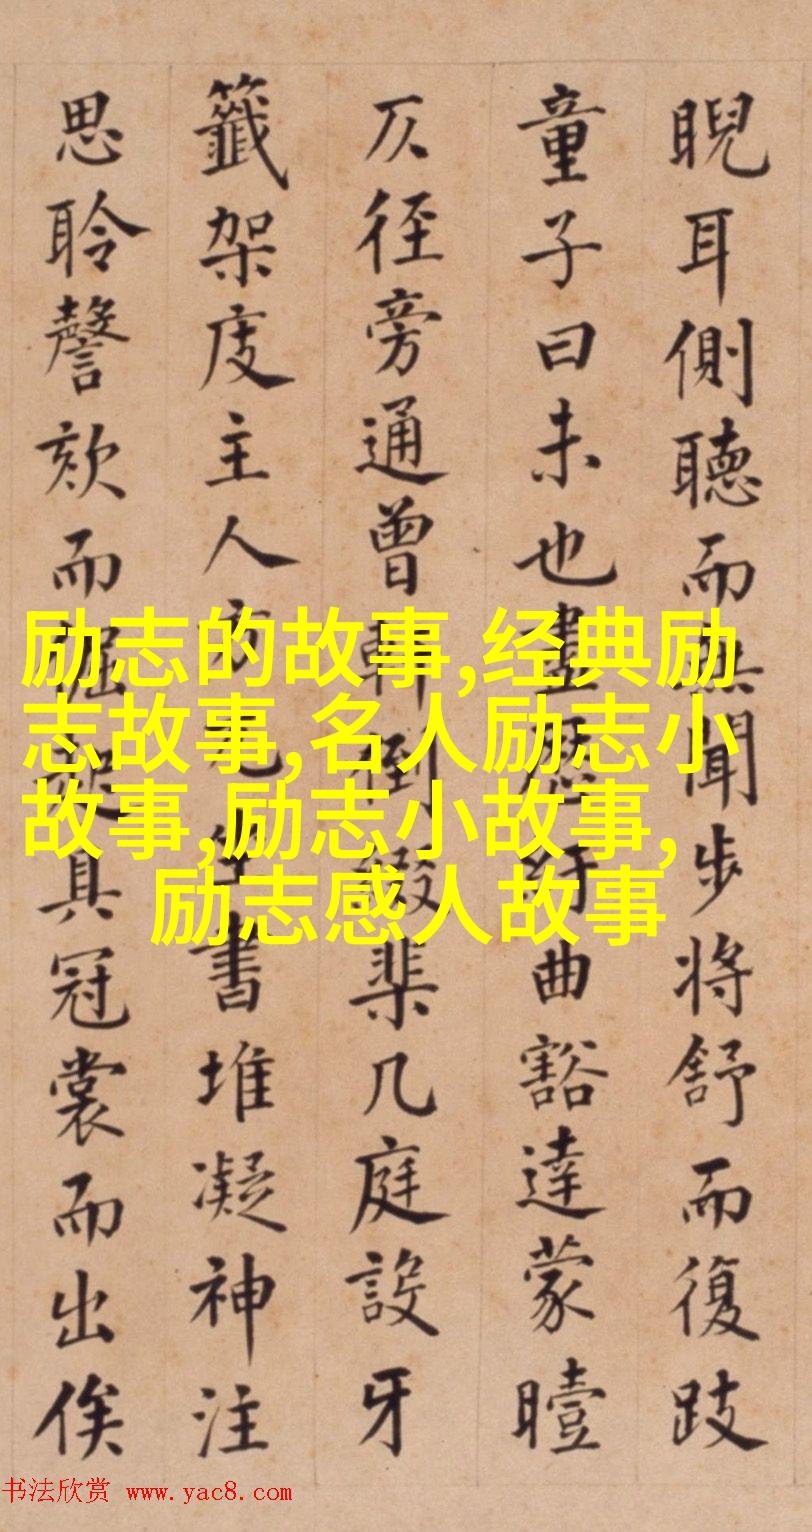 睨耳側聽而無聞步將舒而復跂
童子曰未也盡紆曲豁達蒙曀
仄徑旁通曾軒倒綴棐几庭設牙
籤架庋主人方兀坐書堆凝神注
思聆謦欬而起具冠裳而出俟
励志的故事,经典励
志故事,名人励志小
故事,励志小故事,
励志感人故事
书法欣赏 www.yac8.com